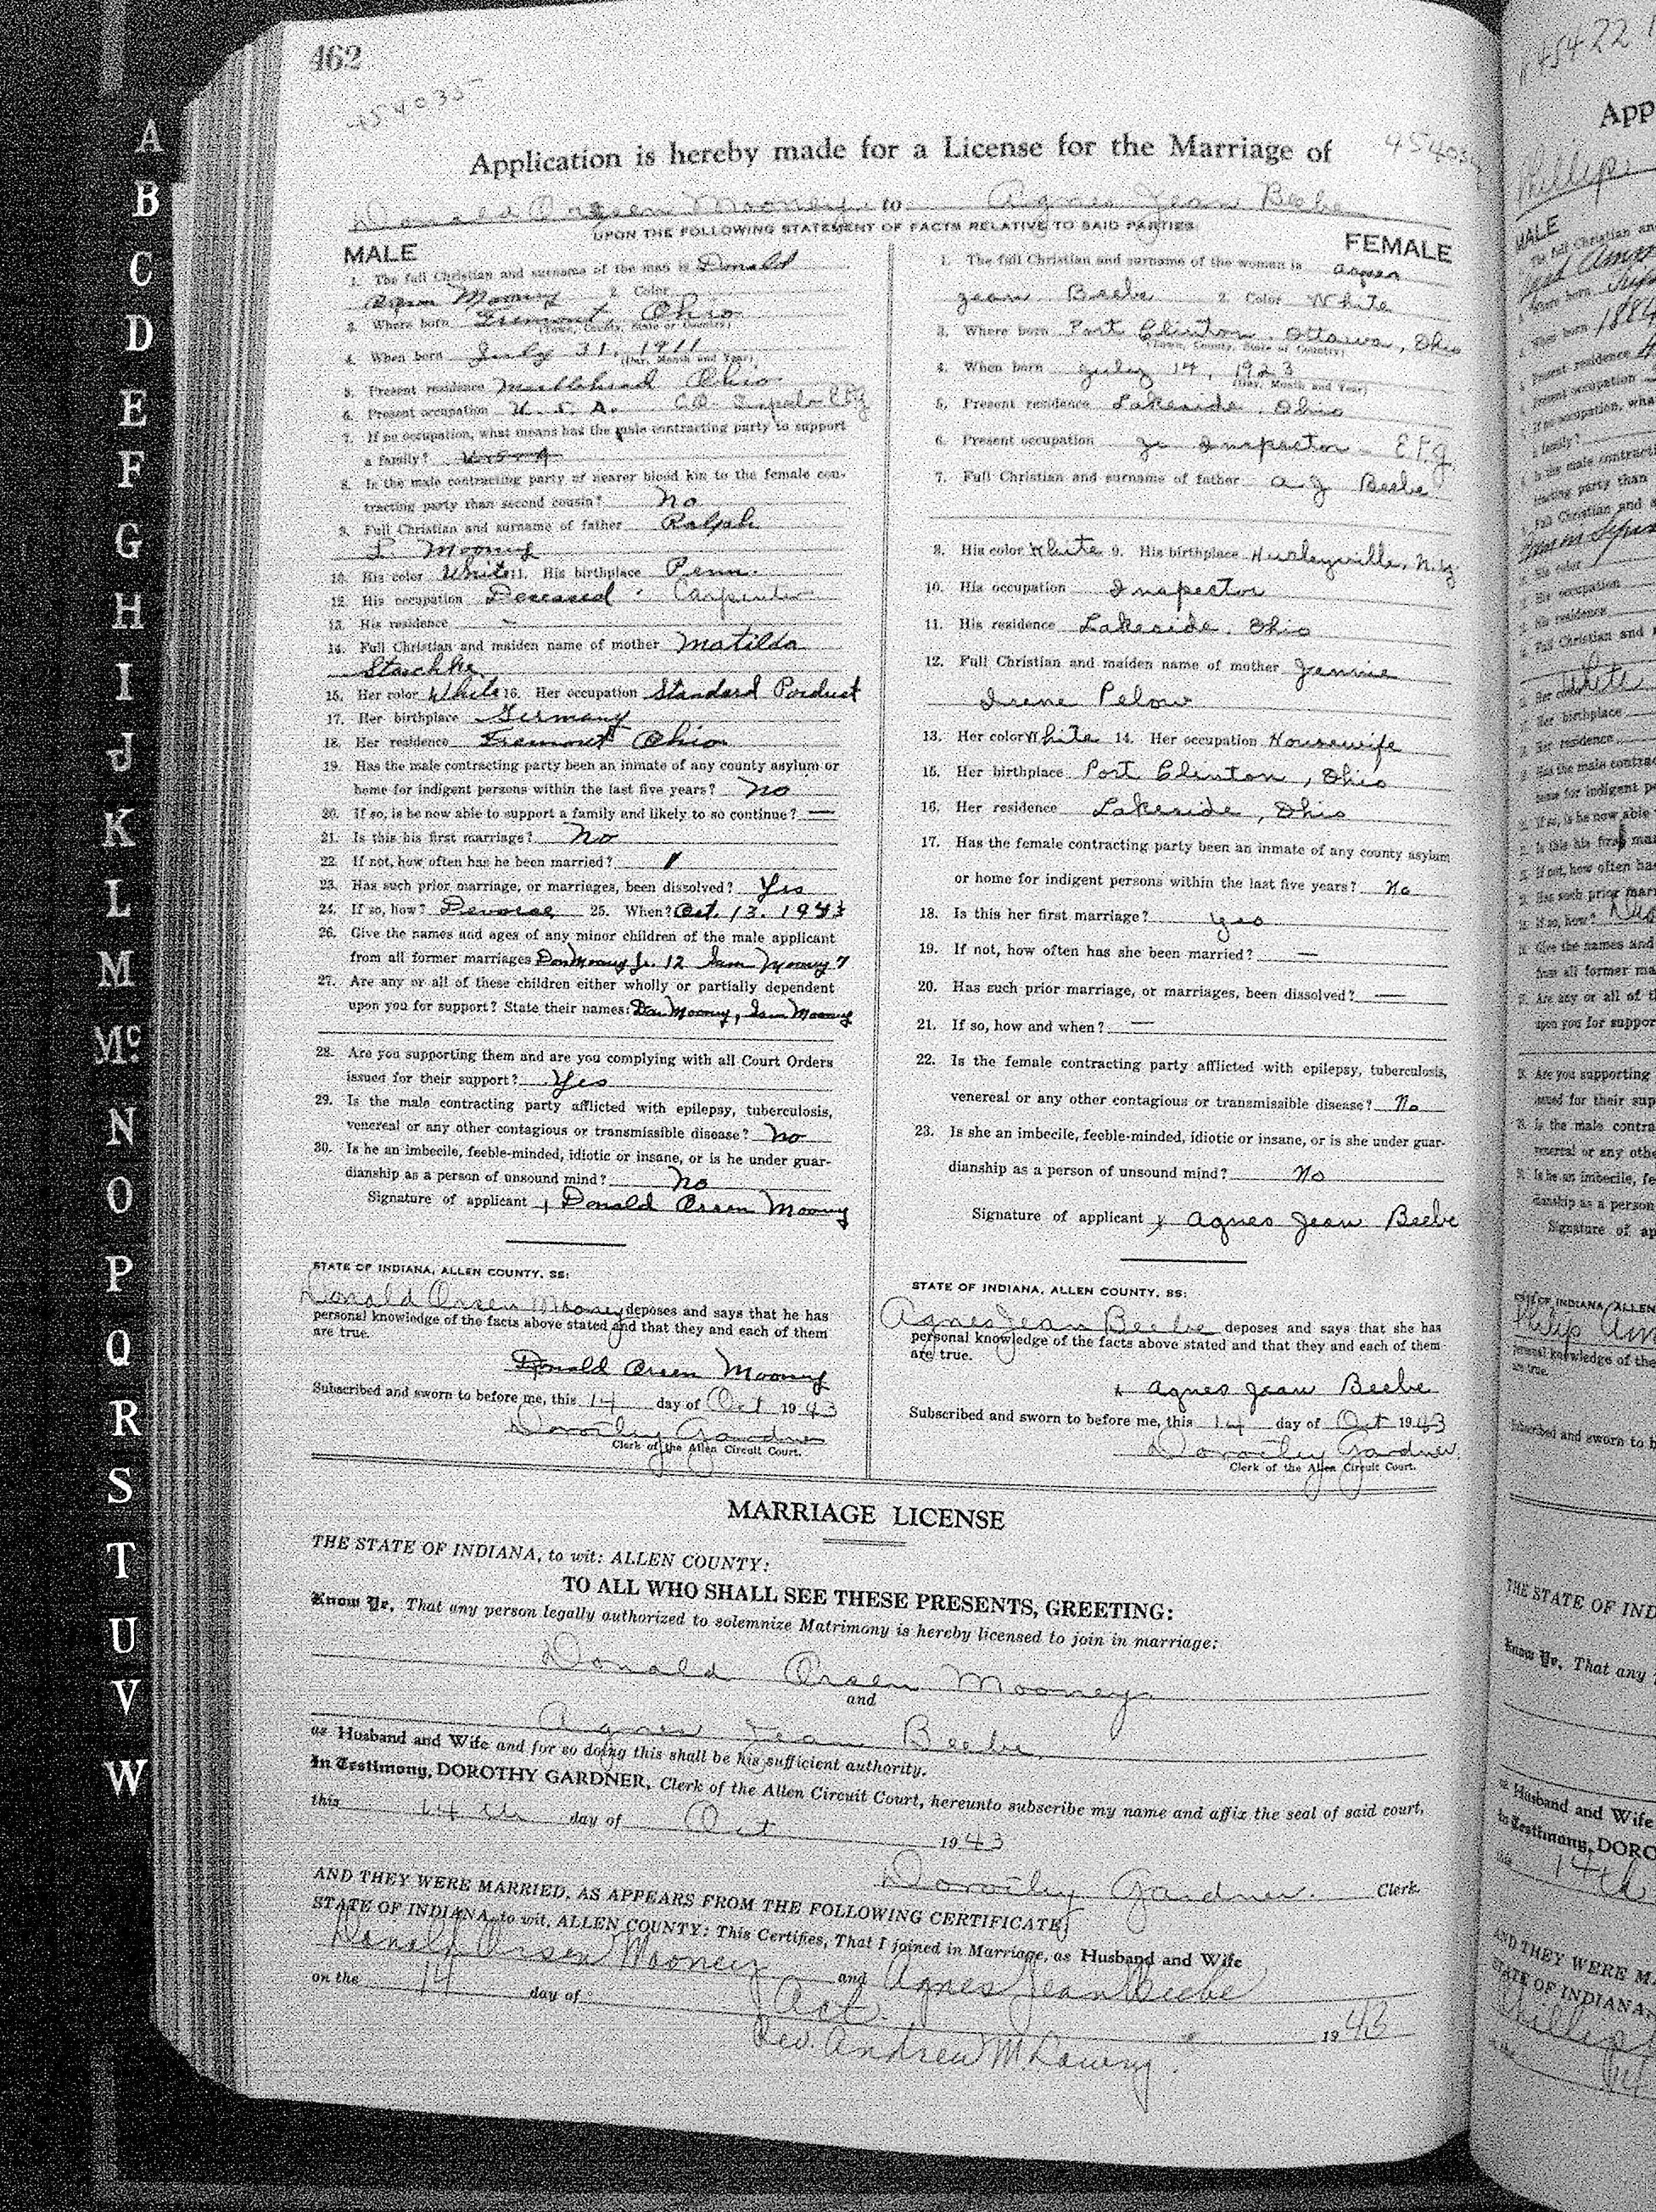 462
454035
Application is hereby made for a License for the Marriage of
Donald Orsen Mooney to Agnes Jean Beebe
UPON THE FOLLOWING STATEMENT OF FACTS RELATIVE TO SAID PARTIES
MALE
1. The full Christian and surname of the man is Donald
Orsen Mooney 2. Color
3. Where born Fremont Ohio
(Town, County, State or Country)
4. When born July 31, 1911
(Day, Month and Year)
5. Present residence Marblehead Ohio
6. Present occupation U. S. A.
7. If no occupation, what means has the male contracting party to support
a family?
8. Is the male contracting party of nearer blood kin to the female con-
tracting party than second cousin? No
9. Full Christian and surname of father Ralph
L. Mooney
10. His color White 11. His birthplace Penn.
12. His occupation Deceased - Carpenter
13. His residence -
14. Full Christian and maiden name of mother Matilda
Staschke
15. Her color White 16. Her occupation Standard Poduct
17. Her birthplace Germany
18. Her residence Fremont Ohio
19. Has the male contracting party been an inmate of any county asylum or
home for indigent persons within the last five years? No
20. If so, is he now able to support a family and likely to so continue? —
21. Is this his first marriage? No
22. If not, how often has he been married? 1
23. Has such prior marriage, or marriages, been dissolved? Yes
24. If so, how? Devorce 25. When? Oct. 13. 1943
26. Give the names and ages of any minor children of the male applicant
from all former marriages Don Mooney Jr. 12 Mooney 7
27. Are any or all of these children either wholly or partially dependent
upon you for support? State their names: Don Mooney, Mooney
28. Are you supporting them and are you complying with all Court Orders
issued for their support? Yes
29. Is the male contracting party afflicted with epilepsy, tuberculosis,
venereal or any other contagious or transmissible disease? No
30. Is he an imbecile, feeble-minded, idiotic or insane, or is he under guar-
dianship as a person of unsound mind? No
Signature of applicant Donald Orsen Mooney
STATE OF INDIANA, ALLEN COUNTY, SS:
Donald Orsen Mooney deposes and says that he has
personal knowledge of the facts above stated and that they and each of them
are true.
Donald Orsen Mooney
Subscribed and sworn to before me, this 14 day of Oct 1943
Dorothy Gardner
Clerk of the Allen Circuit Court.
FEMALE
1. The full Christian and surname of the woman is Agnes
Jean Beebe 2. Color White
3. Where born Port Clinton, Ottawa, Ohio
(Town, County, State or Country)
4. When born July 14, 1923
(Day, Month and Year)
5. Present residence Lakeside, Ohio
6. Present occupation Jr Inspector -
7. Full Christian and surname of father A. J Beebe
8. His color White 9. His birthplace Hurleyville, N. Y.
10. His occupation Inspector
11. His residence Lakeside, Ohio
12. Full Christian and maiden name of mother Jennie
Irene Pelow
13. Her color White 14. Her occupation Housewife
15. Her birthplace Port Clinton, Ohio
16. Her residence Lakeside, Ohio
17. Has the female contracting party been an inmate of any county asylum
or home for indigent persons within the last five years? No
18. Is this her first marriage? Yes
19. If not, how often has she been married? —
20. Has such prior marriage, or marriages, been dissolved? —
21. If so, how and when? —
22. Is the female contracting party afflicted with epilepsy, tuberculosis,
venereal or any other contagious or transmissible disease? No
23. Is she an imbecile, feeble-minded, idiotic or insane, or is she under guar-
dianship as a person of unsound mind? No
Signature of applicant x Agnes Jean Beebe
STATE OF INDIANA, ALLEN COUNTY, SS:
Agnes Jean Beebe deposes and says that she has
personal knowledge of the facts above stated and that they and each of them
are true.
x Agnes Jean Beebe
Subscribed and sworn to before me, this 14 day of Oct 1943
Dorothy Gardner
Clerk of the Allen Circuit Court.
MARRIAGE LICENSE
THE STATE OF INDIANA, to wit: ALLEN COUNTY:
TO ALL WHO SHALL SEE THESE PRESENTS, GREETING:
Know Ye, That any person legally authorized to solemnize Matrimony is hereby licensed to join in marriage:
Donald Orsen Mooney
and
Agnes Jean Beebe
as Husband and Wife and for so doing this shall be his sufficient authority.
In Testimony, DOROTHY GARDNER, Clerk of the Allen Circuit Court, hereunto subscribe my name and affix the seal of said court,
this 14th day of Oct 1943
Dorothy Gardner. Clerk.
AND THEY WERE MARRIED, AS APPEARS FROM THE FOLLOWING CERTIFICATE
STATE OF INDIANA, to wit, ALLEN COUNTY: This Certifies, That I joined in Marriage, as Husband and Wife
Donald Orsen Mooney and Agnes Jean Beebe
on the 14 day of Oct. 1943
Rev. Andrew M. Lowry.
A
B
C
D
E
F
G
H
I
J
K
L
M
Mc
N
O
P
Q
R
S
T
U
V
W